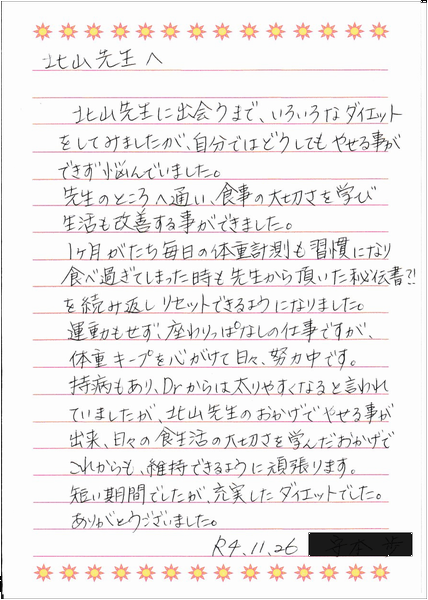 北山先生へ
北山先生に出会うまで、いろいろなダイエット
をしてみましたが、自分ではどうしてもやせる事が
できず悩んでいました。
先生のところへ通い、食事の大切さを学び
生活も改善する事ができました。
1ヶ月がたち毎日の体重計測も習慣になり
食べ過ぎてしまった時も先生から頂いた秘伝書?!
を続み返しリセットできるようになりました。
運動もせず、座わりっぱなしの仕事ですが、
体重キープを心がけて日々、努力中です。
持病もあり、Drからは太りやすくなると言われ
ていましたが、北山先生のおかげでやせる事が
出来、日々の食生活の大切さを学んだおかげで
これからも、維持できるように頑張ります。
短い期間でしたが、充実したダイエットでした。
ありがとうございました。
R4.11.26